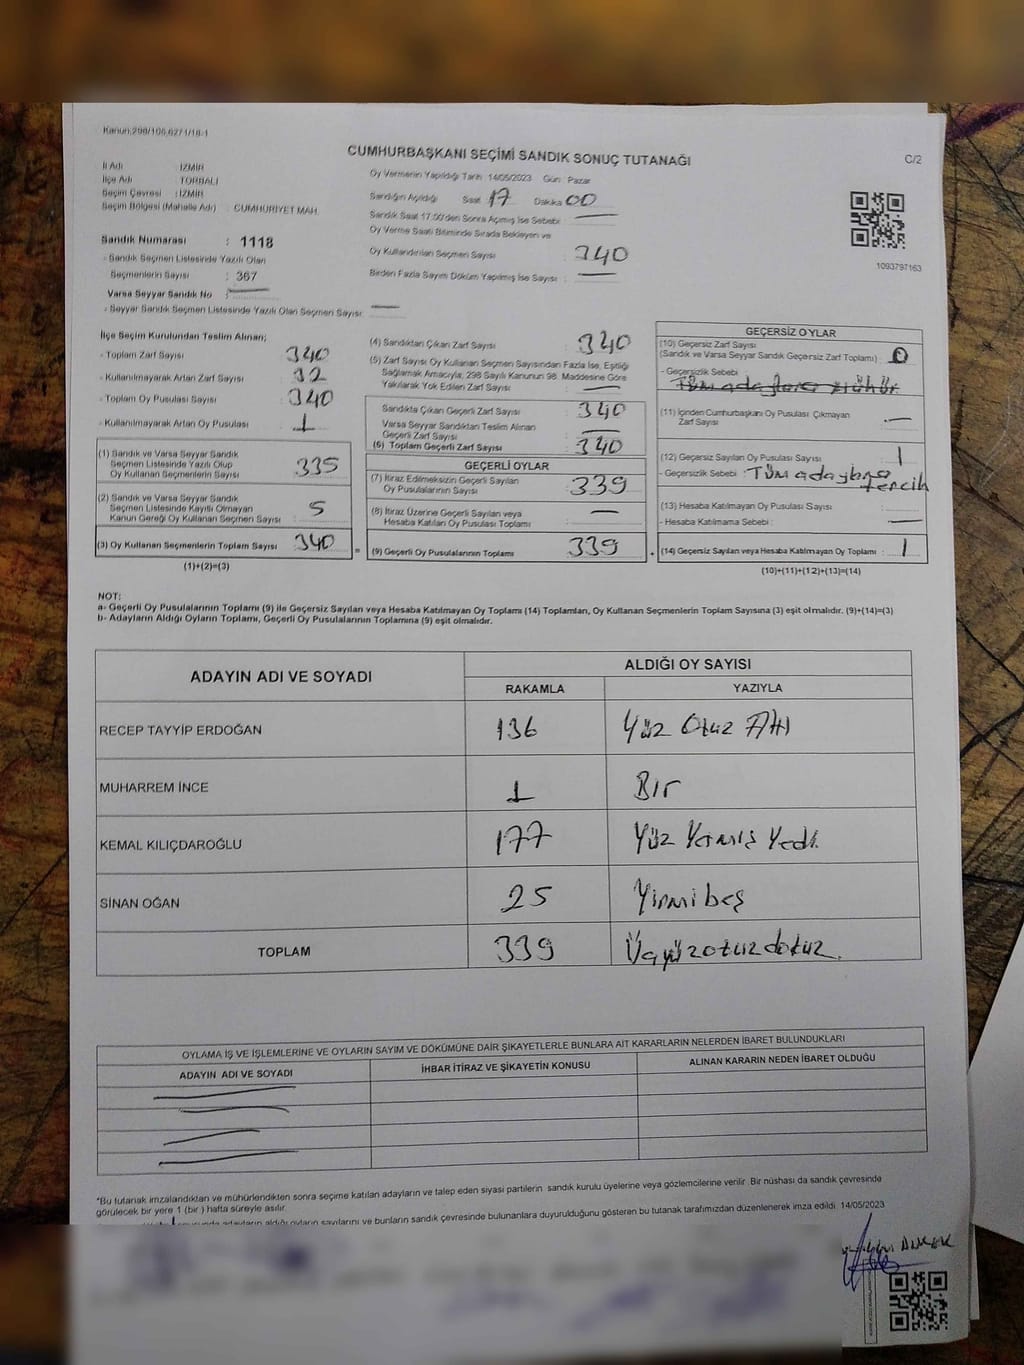 Kanun:298/106,6271/18-1
CUMHURBAŞKANI SEÇİMİ SANDIK SONUÇ TUTANAĞI
C/2
İl Adı : İZMİR
İlçe Adı : TORBALI
Seçim Çevresi : İZMİR
Seçim Bölgesi (Mahalle Adı) : CUMHURİYET MAH.
Sandık Numarası : 1118
- Sandık Seçmen Listesinde Yazılı Olan
Seçmenlerin Sayısı : 367
Varsa Seyyar Sandık No :
- Seyyar Sandık Seçmen Listesinde Yazılı Olan Seçmen Sayısı:
Oy Vermenin Yapıldığı Tarih :14/05/2023 Gün : Pazar
Sandığın Açıldığı Saat : 17 Dakika : 00
Sandık Saat 17:00'den Sonra Açılmış İse Sebebi :
Oy Verme Saati Bitiminde Sırada Bekleyen ve
Oy Kullandırılan Seçmen Sayısı : 340
Birden Fazla Sayım Döküm Yapılmış İse Sayısı :
1093797163
İlçe Seçim Kurulundan Teslim Alınan;
- Toplam Zarf Sayısı : 340
- Kullanılmayarak Artan Zarf Sayısı : 32
- Toplam Oy Pusulası Sayısı : 340
- Kullanılmayarak Artan Oy Pusulası : 1
(1) Sandık ve Varsa Seyyar Sandık
Seçmen Listesinde Yazılı Olup
Oy Kullanan Seçmenlerin Sayısı : 335
(2) Sandık ve Varsa Seyyar Sandık
Seçmen Listesinde Kayıtlı Olmayan
Kanun Gereği Oy Kullanan Seçmen Sayısı : 5
(3) Oy Kullanan Seçmenlerin Toplam Sayısı : 340
(1)+(2)=(3)
(4) Sandıktan Çıkan Zarf Sayısı : 340
(5) Zarf Sayısı Oy Kullanan Seçmen Sayısından Fazla İse, Eşitliği
Sağlamak Amacıyla, 298 Sayılı Kanunun 98. Maddesine Göre
Yakılarak Yok Edilen Zarf Sayısı :
Sandıkta Çıkan Geçerli Zarf Sayısı : 340
Varsa Seyyar Sandıktan Teslim Alınan
Geçerli Zarf Sayısı :
(6) Toplam Geçerli Zarf Sayısı : 340
GEÇERLİ OYLAR
(7) İtiraz Edilmeksizin Geçerli Sayılan
Oy Pusulalarının Sayısı : 339
(8) İtiraz Üzerine Geçerli Sayılan veya
Hesaba Katılan Oy Pusulası Toplamı :
= (9) Geçerli Oy Pusulalarının Toplamı : 339
GEÇERSİZ OYLAR
(10) Geçersiz Zarf Sayısı
(Sandık ve Varsa Seyyar Sandık Geçersiz Zarf Toplamı) : 0
- Geçersizlik Sebebi :
Tüm adaylara mühür
(11) İçinden Cumhurbaşkanı Oy Pusulası Çıkmayan
Zarf Sayısı :
(12) Geçersiz Sayılan Oy Pusulası Sayısı : 1
- Geçersizlik Sebebi : Tüm adaylara
tercih
(13) Hesaba Katılmayan Oy Pusulası Sayısı :
- Hesaba Katılmama Sebebi :
(14) Geçersiz Sayılan veya Hesaba Katılmayan Oy Toplamı : 1
(10)+(11)+(12)+(13)=(14)
NOT:
a- Geçerli Oy Pusulalarının Toplamı (9) ile Geçersiz Sayılan veya Hesaba Katılmayan Oy Toplamı (14) Toplamları, Oy Kullanan Seçmenlerin Toplam Sayısına (3) eşit olmalıdır. (9)+(14)=(3)
b- Adayların Aldığı Oyların Toplamı, Geçerli Oy Pusulalarının Toplamına (9) eşit olmalıdır.
ADAYIN ADI VE SOYADI
ALDIĞI OY SAYISI
RAKAMLA YAZIYLA
RECEP TAYYİP ERDOĞAN 136 Yüz Otuz Altı
MUHARREM İNCE 1 Bir
KEMAL KILIÇDAROĞLU 177 Yüz Yetmiş Yedi
SİNAN OĞAN 25 Yirmibeş
TOPLAM 339 Üçyüzotuzdokuz
OYLAMA İŞ VE İŞLEMLERİNE VE OYLARIN SAYIM VE DÖKÜMÜNE DAİR ŞİKAYETLERLE BUNLARA AİT KARARLARIN NELERDEN İBARET BULUNDUKLARI
ADAYIN ADI VE SOYADI İHBAR İTİRAZ VE ŞİKAYETİN KONUSU ALINAN KARARIN NEDEN İBARET OLDUĞU
*Bu tutanak imzalandıktan ve mühürlendikten sonra seçime katılan adayların ve talep eden siyasi partilerin sandık kurulu üyelerine veya gözlemcilerine verilir. Bir nüshası da sandık çevresinde
görülecek bir yere 1 (bir ) hafta süreyle asılır.
adayların aldığı oyların sayılarını ve bunların sandık çevresinde bulunanlara duyurulduğunu gösteren bu tutanak tarafımızdan düzenlenerek imza edildi. 14/05/2023